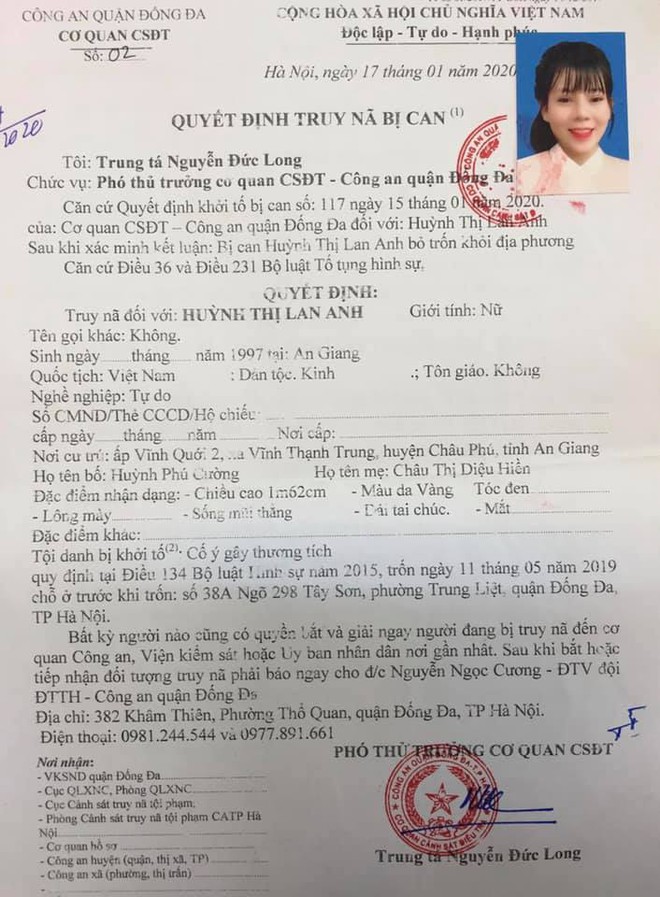 CÔNG AN QUẬN ĐỐNG ĐA
CƠ QUAN CSĐT
Số: 02
CỘNG HÒA XÃ HỘI CHỦ NGHĨA VIỆT NAM
Độc lập - Tự do - Hạnh phúc
Hà Nội, ngày 17 tháng 01 năm 2020
2020
QUYẾT ĐỊNH TRUY NÃ BỊ CAN (1)
Tôi: Trung tá Nguyễn Đức Long
Chức vụ: Phó thủ trưởng cơ quan CSĐT - Công an quận Đống Đa
Căn cứ Quyết định khởi tố bị can số: 117 ngày 15 tháng 01 năm 2020.
của: Cơ quan CSĐT – Công an quận Đống Đa đối với: Huỳnh Thị Lan Anh
Sau khi xác minh kết luận: Bị can Huỳnh Thị Lan Anh bỏ trốn khỏi địa phương
Căn cứ Điều 36 và Điều 231 Bộ luật Tố tụng hình sự,
QUYẾT ĐỊNH:
Truy nã đối với: HUỲNH THỊ LAN ANH Giới tính: Nữ
Tên gọi khác: Không.
Sinh ngày......tháng...... năm 1997 tại: An Giang
Quốc tịch: Việt Nam : Dân tộc. Kinh .; Tôn giáo. Không
Nghề nghiệp: Tự do
Số CMND/Thẻ CCCD/Hộ chiếu:
cấp ngày......tháng......năm......... Nơi cấp:
Nơi cư trú: ấp Vĩnh Quới 2, xã Vĩnh Thạnh Trung, huyện Châu Phú, tỉnh An Giang
Họ tên bố: Huỳnh Phú Cường Họ tên mẹ: Châu Thị Diệu Hiền
Đặc điểm nhận dạng: - Chiều cao 1m62cm - Màu da Vàng Tóc đen
- Lông mày - Sống mũi thẳng - Dái tai chúc. - Mắt
Đặc điểm khác:
Tội danh bị khởi tố(2): Cố ý gây thương tích
quy định tại Điều 134 Bộ luật Hình sự năm 2015, trốn ngày 11 tháng 05 năm 2019
chỗ ở trước khi trốn: số 38A Ngõ 298 Tây Sơn, phường Trung Liệt, quận Đống Đa,
TP Hà Nội.
Bất kỳ người nào cũng có quyền bắt và giải ngay người đang bị truy nã đến cơ
quan Công an, Viện kiểm sát hoặc Ủy ban nhân dân nơi gần nhất. Sau khi bắt hoặc
tiếp nhận đối tượng truy nã phải báo ngay cho đ/c Nguyễn Ngọc Cương - ĐTV đội
ĐTTH - Công an quận Đống Đa
Địa chỉ: 382 Khâm Thiên, Phường Thổ Quan, quận Đống Đa, TP Hà Nội.
Điện thoại: 0981.244.544 và 0977.891.661
Nơi nhận:
- VKSND quận Đống Đa
- Cục QLXNC, Phòng QLXNC
- Cục Cảnh sát truy nã tội phạm.
- Phòng Cảnh sát truy nã tội phạm CATP Hà
Nội
- Cơ quan hồ sơ
- Công an huyện (quận, thị xã, TP)
- Công an xã (phường, thị trấn)
PHÓ THỦ TRƯỞNG CƠ QUAN CSĐT
Trung tá Nguyễn Đức Long